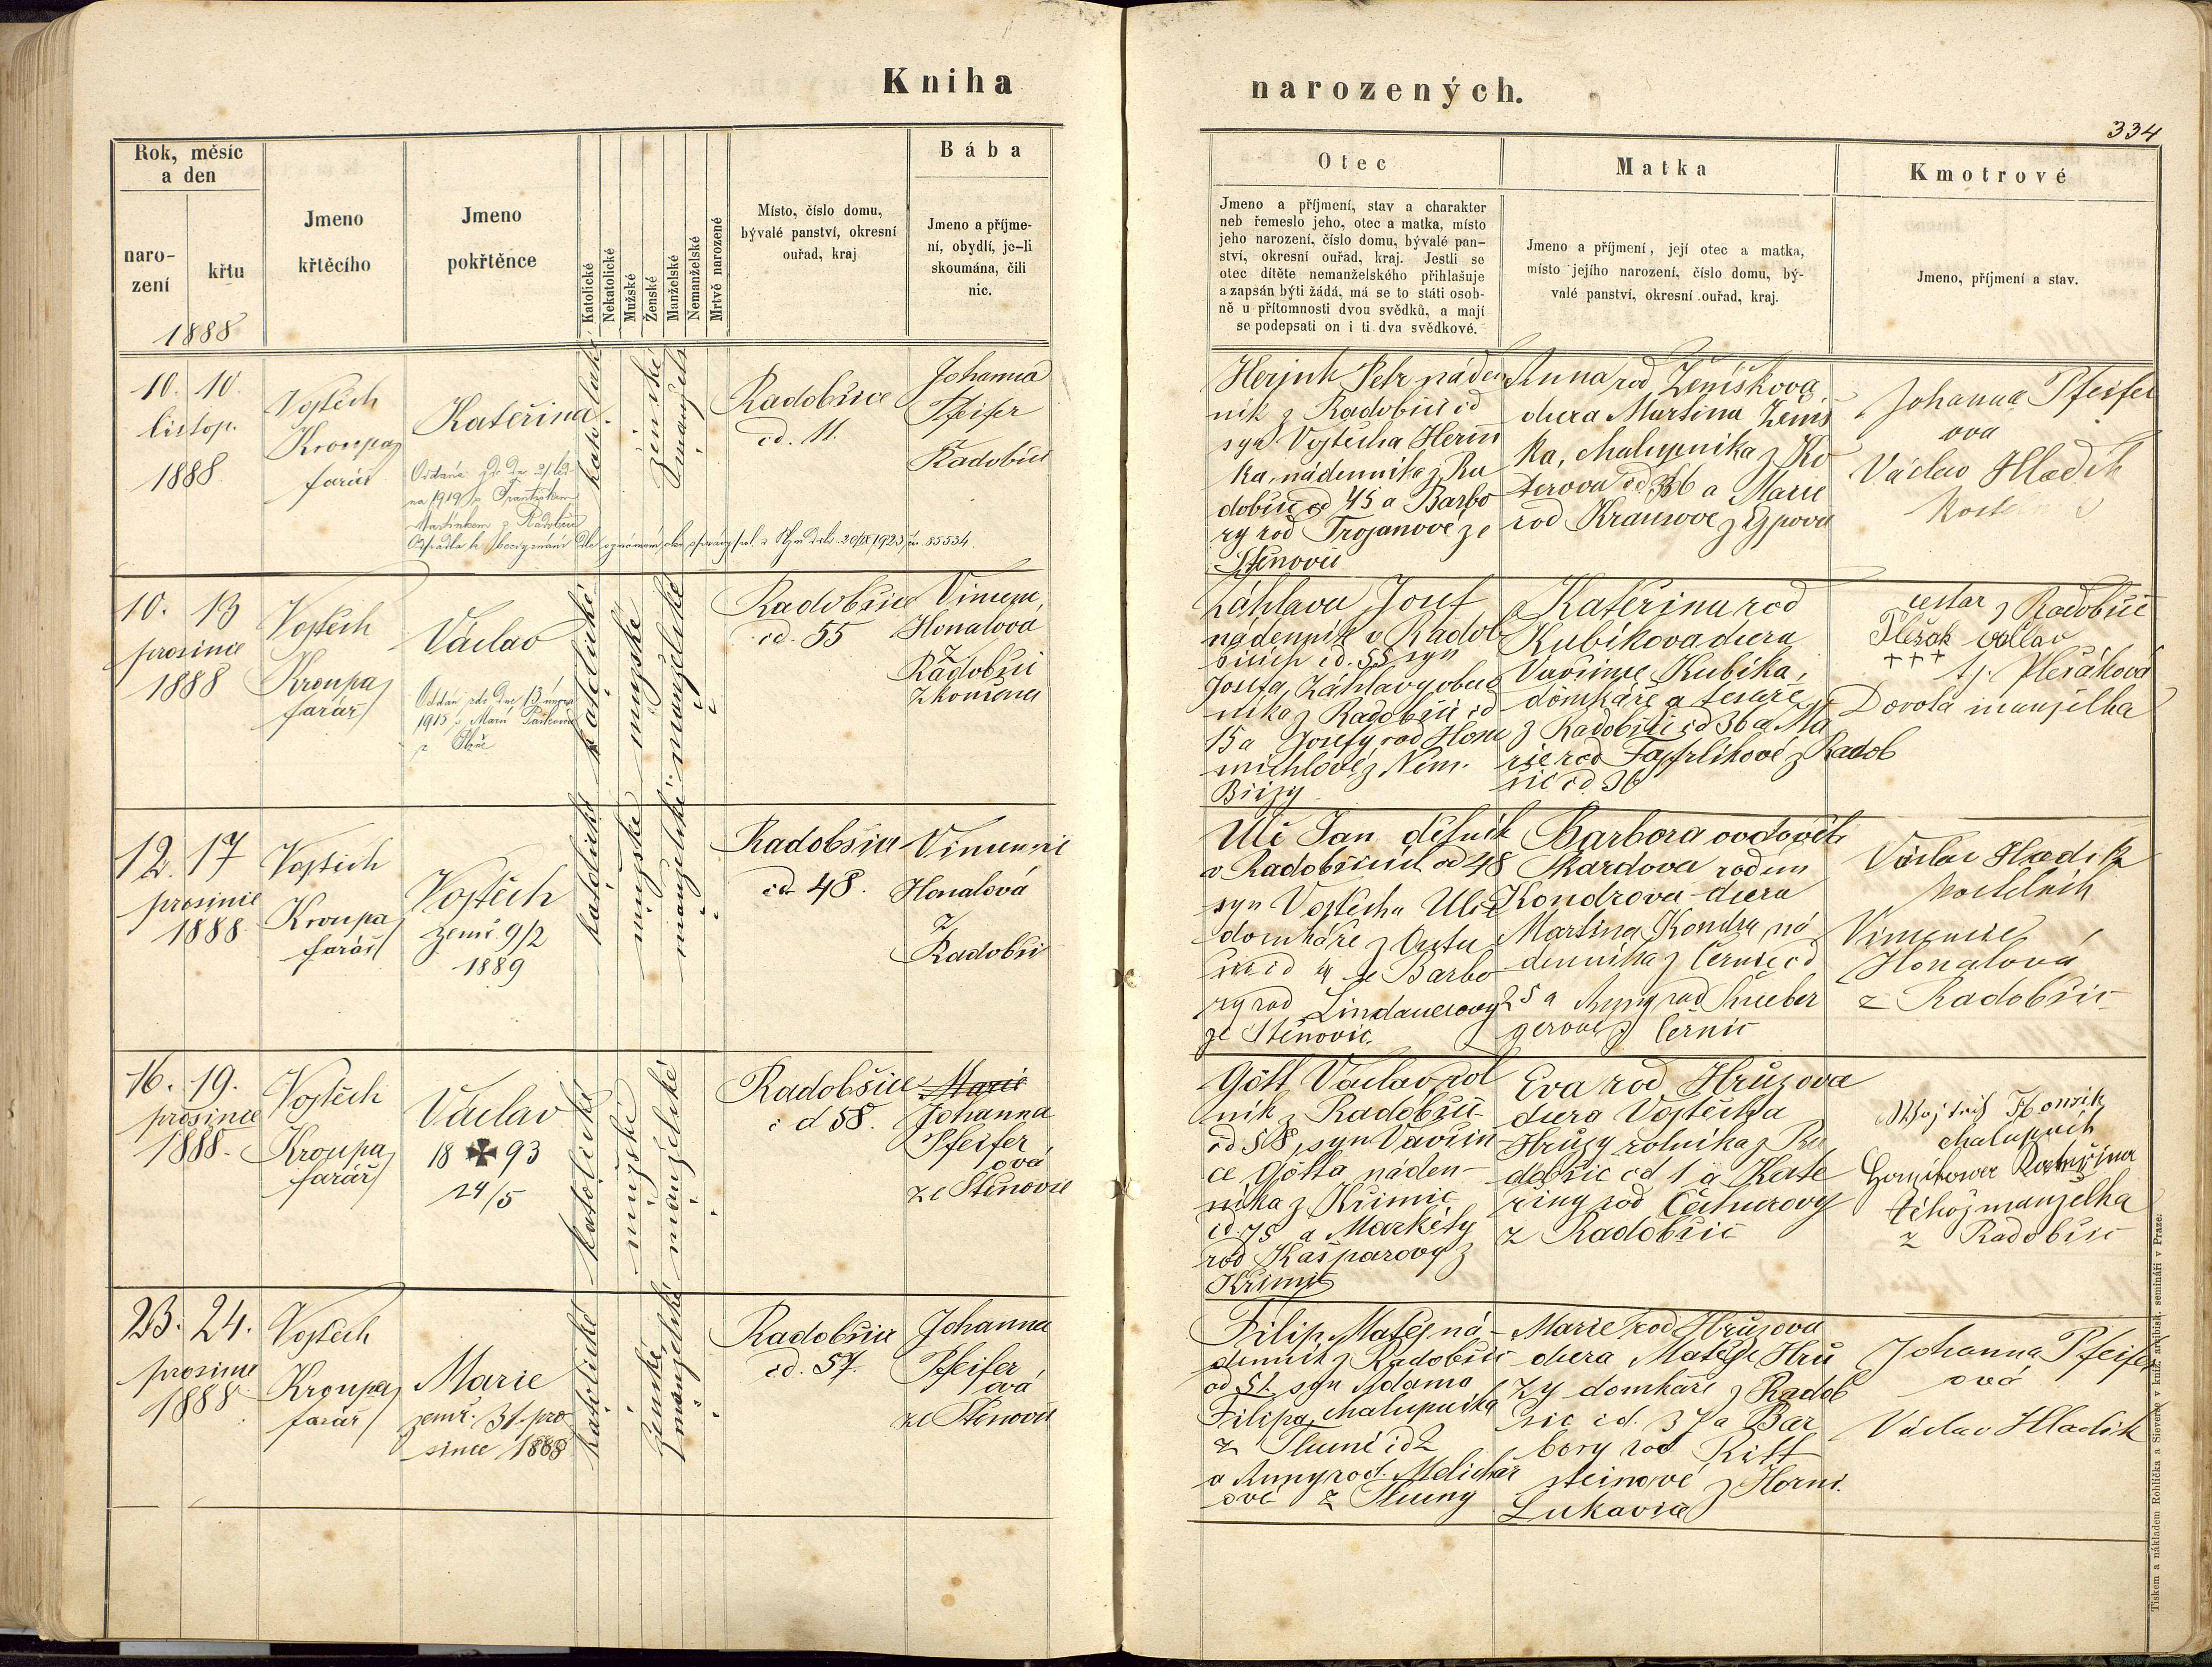 Kniha
narozených.
334
Rok, měsíc
a den
naro-
zení
křtu
1888
Jmeno
křtěcího
Jmeno
pokřtěnce
Katolické
Nekatolické
Mužské
Ženské
Manželské
Nemanželské
Mrtvě narozené
Místo, číslo domu,
bývalé panství, okresní
ouřad, kraj
Bába
Jmeno a příjme-
ní, obydlí, je-li
skoumána, čili
nic.
Otec
Jmeno a příjmení, stav a charakter
neb řemeslo jeho, otec a matka, místo
jeho narození, číslo domu, bývalé pan-
ství, okresní ouřad, kraj. Jestli se
otec dítěte nemanželského přihlašuje
a zapsán býti žádá, má se to státi osob-
ně u přítomnosti dvou svědků, a mají
se podepsati on i ti dva svědkové.
Matka
Jmeno a příjmení, její otec a matka,
místo jejího narození, číslo domu, bý-
valé panství, okresní ouřad, kraj.
Kmotrové
Jmeno, příjmení a stav.
10. 10.
listop.
1888
Vojtěch
Kroupa
farář
Kateřina
na 1919 s Františkem
Martinkem z Radobčic
20/IX 1923 čn. 85534.
ženské
Radobčice
čd. 11.
Johanna
Pfeifer
Radobčic
Petr náden
ník z Radobčic čd
syn Vojtěcha
ka, nádenníka z Ra
dobčic čd 45 a Barbo
ry rod Trojanové ze
Štěnovic
Anna rod Ženíškova
dcera Martina Ženíš
ka, chalupníka z Ko
terova čd 36 a Marie
rod Krausove z
Johanna Pfeifer
ova
Václav Hladík
10. 13
prosince
1888
Vojtěch
Kroupa
farář
Václav
Oddán dne 13. února
1915 s Marií
katolické
mužské
manželské
Radobčice
čd. 55
Honalová
z
Radobčic
zkoušena
Záhlava Josef
nádenník v Radob
čicích čd. 55 syn
Josefa Záhlavy
níka z Radobčic čd
15 a Josefy rod
z Něm.
Břízy
Kateřina rod
Kubíkova dcera
Vavřince Kubíka,
domkáře a tesaře
z Radobčic čd 36 a Ma
rie rod z Radob
čic čd 36
cestář z Radobčic
+++
Plešáková
manželka
12. 17
prosince
1888
Vojtěch
Kroupa
farář
Vojtěch
zemř. 9/2
1889
katolické
mužské
manželské
Radobčice
čd. 48.
Honalová
z
Radobčic
Ulč Jan dělník
v Radobčicích čd 48
syn Vojtěcha Ulče
domkáře z
čd 4 a Barbo
ry rod Lindauerovy
ze Štěnovic.
Barbora
rodem
Kondrova dcera
Martina Kondra ná
denníka z Černic čd
25 a Anny rod
gerove z Černic
Václav Hladík
kostelník
Honalová
z Radobčic
16. 19.
prosince
1888.
Vojtěch
Kroupa
farář
Václav
18 ✠ 93
24/5
katolické
mužské
manželské
Radobčice
čd 58.
Marie
Johanna
Pfeifer
ová
ze Štěnovic
Gött Václav rol
ník z Radobčic
čd 58, syn Vavřin
ce Götta náden-
níka z Křimic
čd 75 a Markéty
rod Kašparovy z
Křimic
Eva rod Hrůzova
dcera Vojtěcha
Hrůzy rolníka z Ra
dobčic čd 1 a Kate
řiny rod
z Radobčic
Honzík
chalupník
Kateřina
téhož manželka
z Radobčic
23. 24.
prosince
1888
Vojtěch
Kroupa
farář
Marie
zemř. 31. pro
since 1888
katolické
ženské
manželské
Radobčice
čd. 57.
Johanna
Pfeifer
ová
ze Štěnovic
Filip Matěj ná-
denník z Radobčic
čd 57. syn Adama
Filipa, chalupníka
z čd 2
a Anny rod. Melichar
ové z
Marie rod Hrůzova
dcera Matěje Hrů
zy domkáře z Radob
čic čd. 37 a Bar
bory rod Ritt
steinové z Horní
Lukavice
Johanna Pfeifer
ová
Václav Hladík
Tiskem a nákladem Rohlíčka a Sieverse v kníž. arcibisk. semináři v Praze.